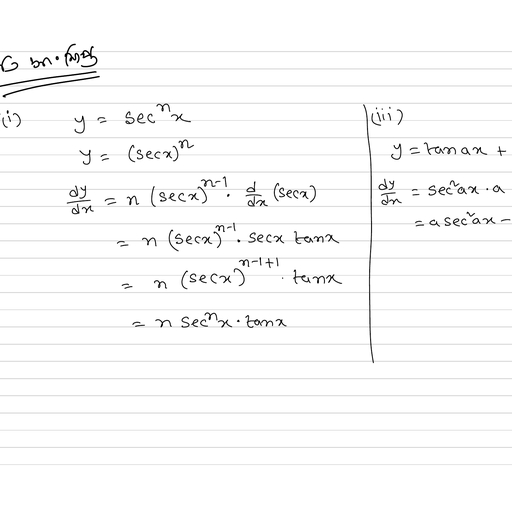 (i)
y = secⁿx
y = (secx)ⁿ
dy/dx = n (secx)ⁿ⁻¹ · d/dx (secx)
= n (secx)ⁿ⁻¹ · secx tanx
= n (secx)ⁿ⁻¹⁺¹ · tanx
= n secⁿx · tanx
(iii)
y = tan ax +
dy/dx = sec²ax · a
= a sec²ax -